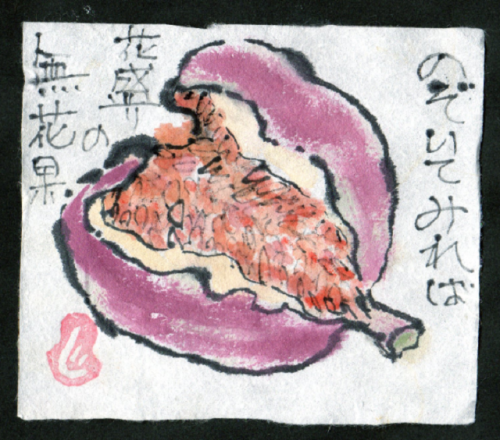 のぞいてみれば
花盛りの
無花果
し